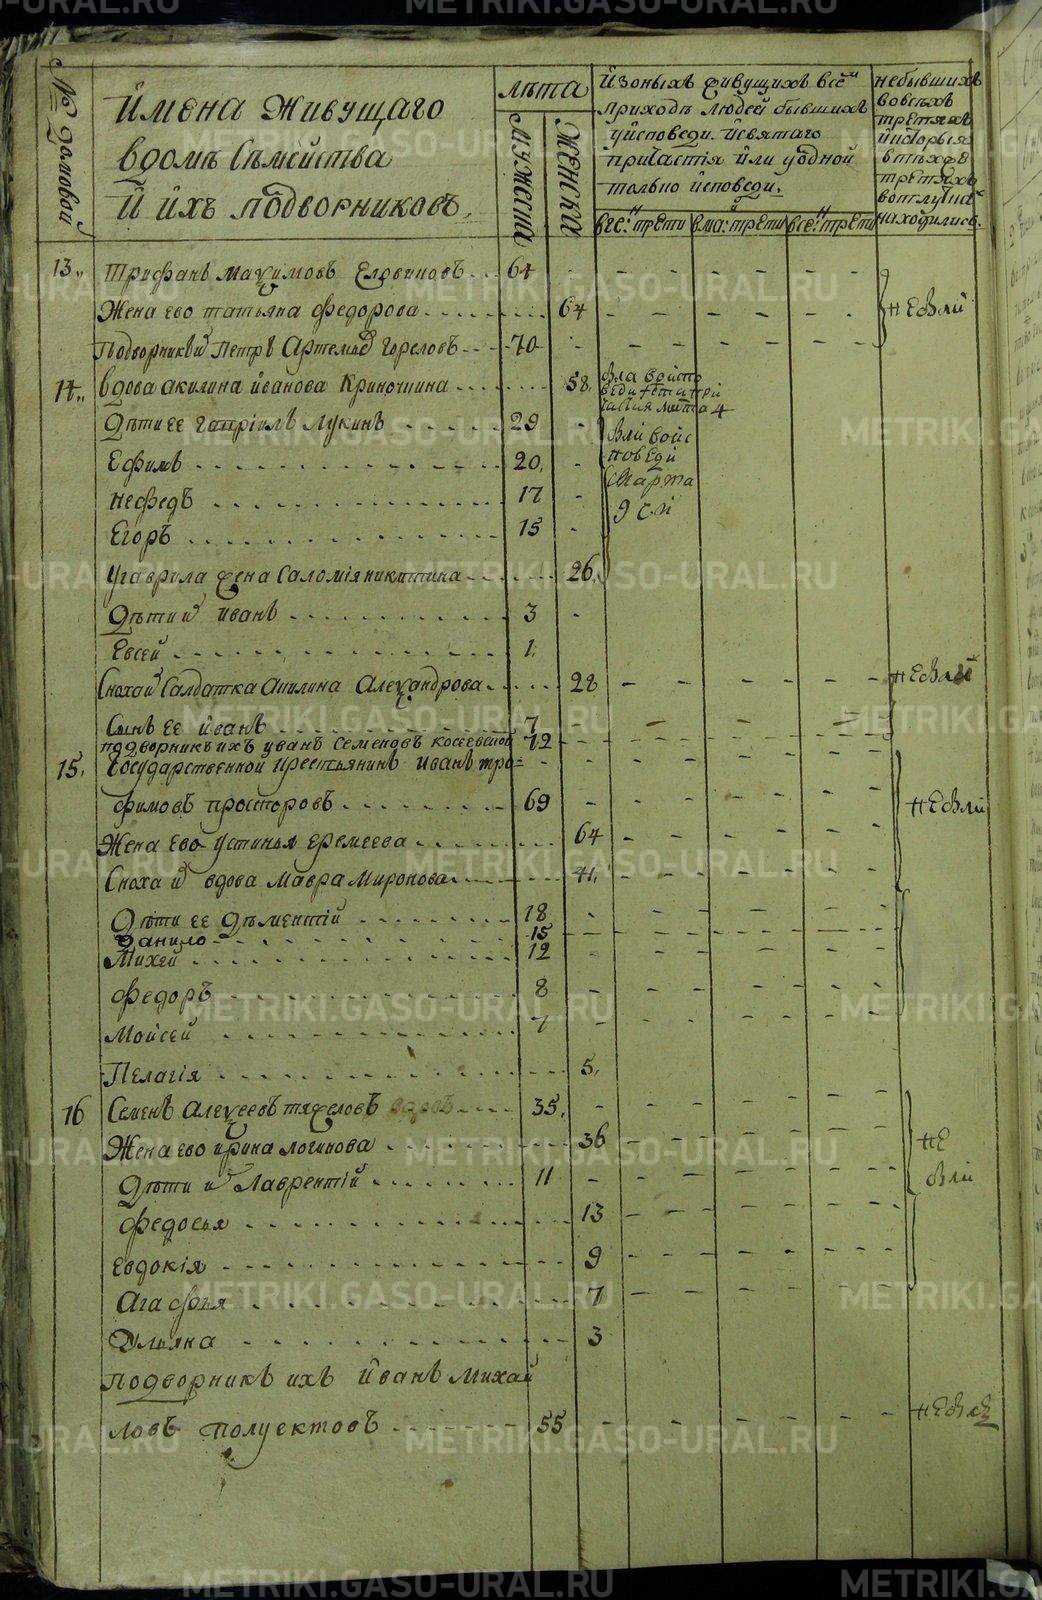 № домовой
Имена живущаго
вдомѣ Сѣмейства
И ихъ подворниковъ.
лѣта
мужеска
женска
Изоныхъ живущихъ всѣ
приходѣ людей бывшихъ
уисповеди исвятаго
причастія или уодной
только исповеди.
вге: трети
вма: трети
все: трети
небывшихъ
вовсѣхъ
третяхъ
икоторыя
втѣхже
третяхъ
вотлучкѣ
находились.
13. Трифанъ Махимовъ 64
Жена ево татьяна Федорова 64 не были
Подворникъ и Петръ Артемьев Гореловъ 70
14. вдова акилина иванова Криночкина 58.
Дѣти ее гаврiилъ Лукинъ 29
были воис
поведи
марта
9
Ефимъ 20.
нефедъ 17
Егоръ 15
угаврила жена Саломія никитина 26.
Дѣти и иванъ 3
Евсей 1.
Сноха и Салдатка Акилина Алехандрова 28 не были
Сынъ ее иванъ 7
подворникъ ихъ иванъ Семеновъ 72
15. Государственной крестьянинъ иванъ тро=
фимовъ просторовъ 69 не были
Жена ево устинья еремеева 64
Сноха и вдова мавра миронова 41.
Дѣти ее Дѣментій 18
данило 15
Михей 12
федоръ 8
Моисей 7
Пелагія 5.
16 Семенъ Алехеевъ тяжеловъ 35.
Жена ево ирина логинова 36 не
были
Дѣти и Лаврентій 11
федосья 13
евдокія 9
Агафья 7
Ульяна 3
подворникъ ихъ иванъ михай
ловъ полуектовъ 55 не былъ
METRIKI.GASO-URAL.RU